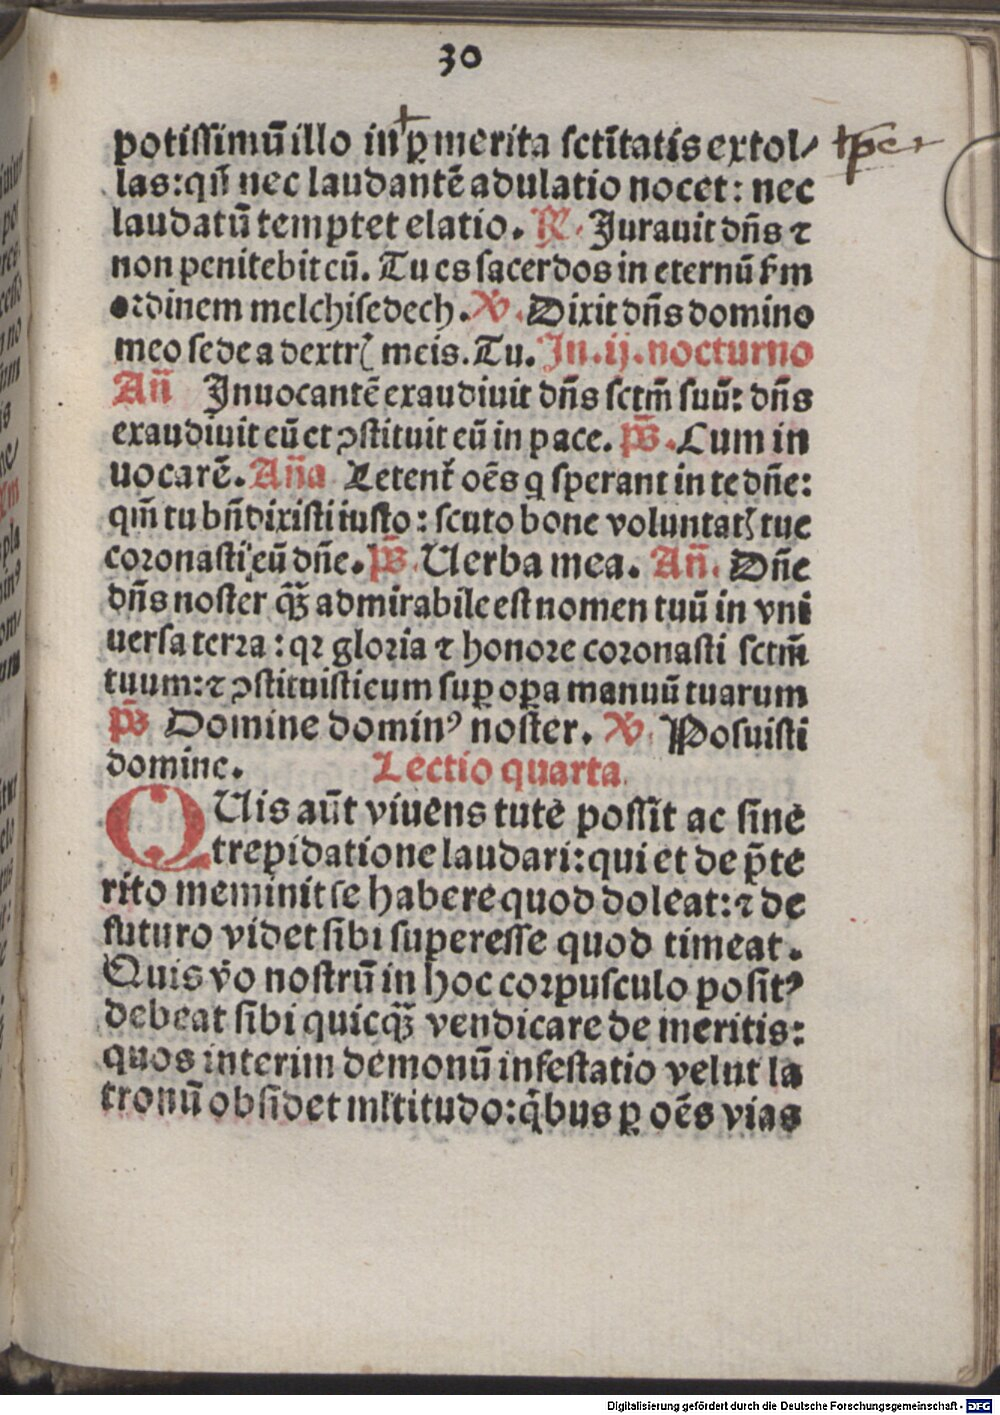 30
potissimū illo in ꝑ merita sctītatis extol⸗ ꝑ
las: qn̄ nec laudantē adulatio nocet: nec
laudatū temptet elatio. R̷. Jurauit dn̄s ⁊
non penitebit eū. Tu es sacerdos in eternū ẜm
ordinem melchisedech. V̷. Dixit dn̄s domino
meo sede a dextrꝭ meis. Tu. Jn. ij. nocturno
An̄ Jnuocantē exaudiuit dn̄s sctm̄ suū: dn̄s
exaudiuit eū et ꝯstituit eū in pace. p̄s. Cum in
uocarē. An̄a Letent̉ oēs q sperant in te dn̄e:
qm̄ tu bn̄dixisti iusto: scuto bone voluntatꝭ tue
coronasti eū dn̄e. p̄s. Uerba mea. An̄. Dn̄e
dn̄s noster qꝫ̄ admirabile est nomen tuū in vni
uersa terra: qꝛ gloria ⁊ honore coronasti sctm̄
tuum: ⁊ ꝯstituisti eum suꝑ oꝑa manuū tuarum
p̄s Domine dominꝰ noster. V̷. Posuisti
domine. Lectio quarta.
QUis aūt viuens tute possit ac sine
treꝑidatione laudari: qui et de p̄te
rito meminit se habere quod doleat: ⁊ de
futuro videt sibi suꝑeresse quod timeat.
Quis v̄o nostrū in hoc corpusculo positꝰ
debeat sibi quicqꝫ̄ vendicare de meritis:
quos interim demonū infestatio velut la
tronū obsidet ml̄titudo: qͥbus ꝑ oēs vias
Digitalisierung gefördert durch die Deutsche Forschungsgemeinschaft - DFG